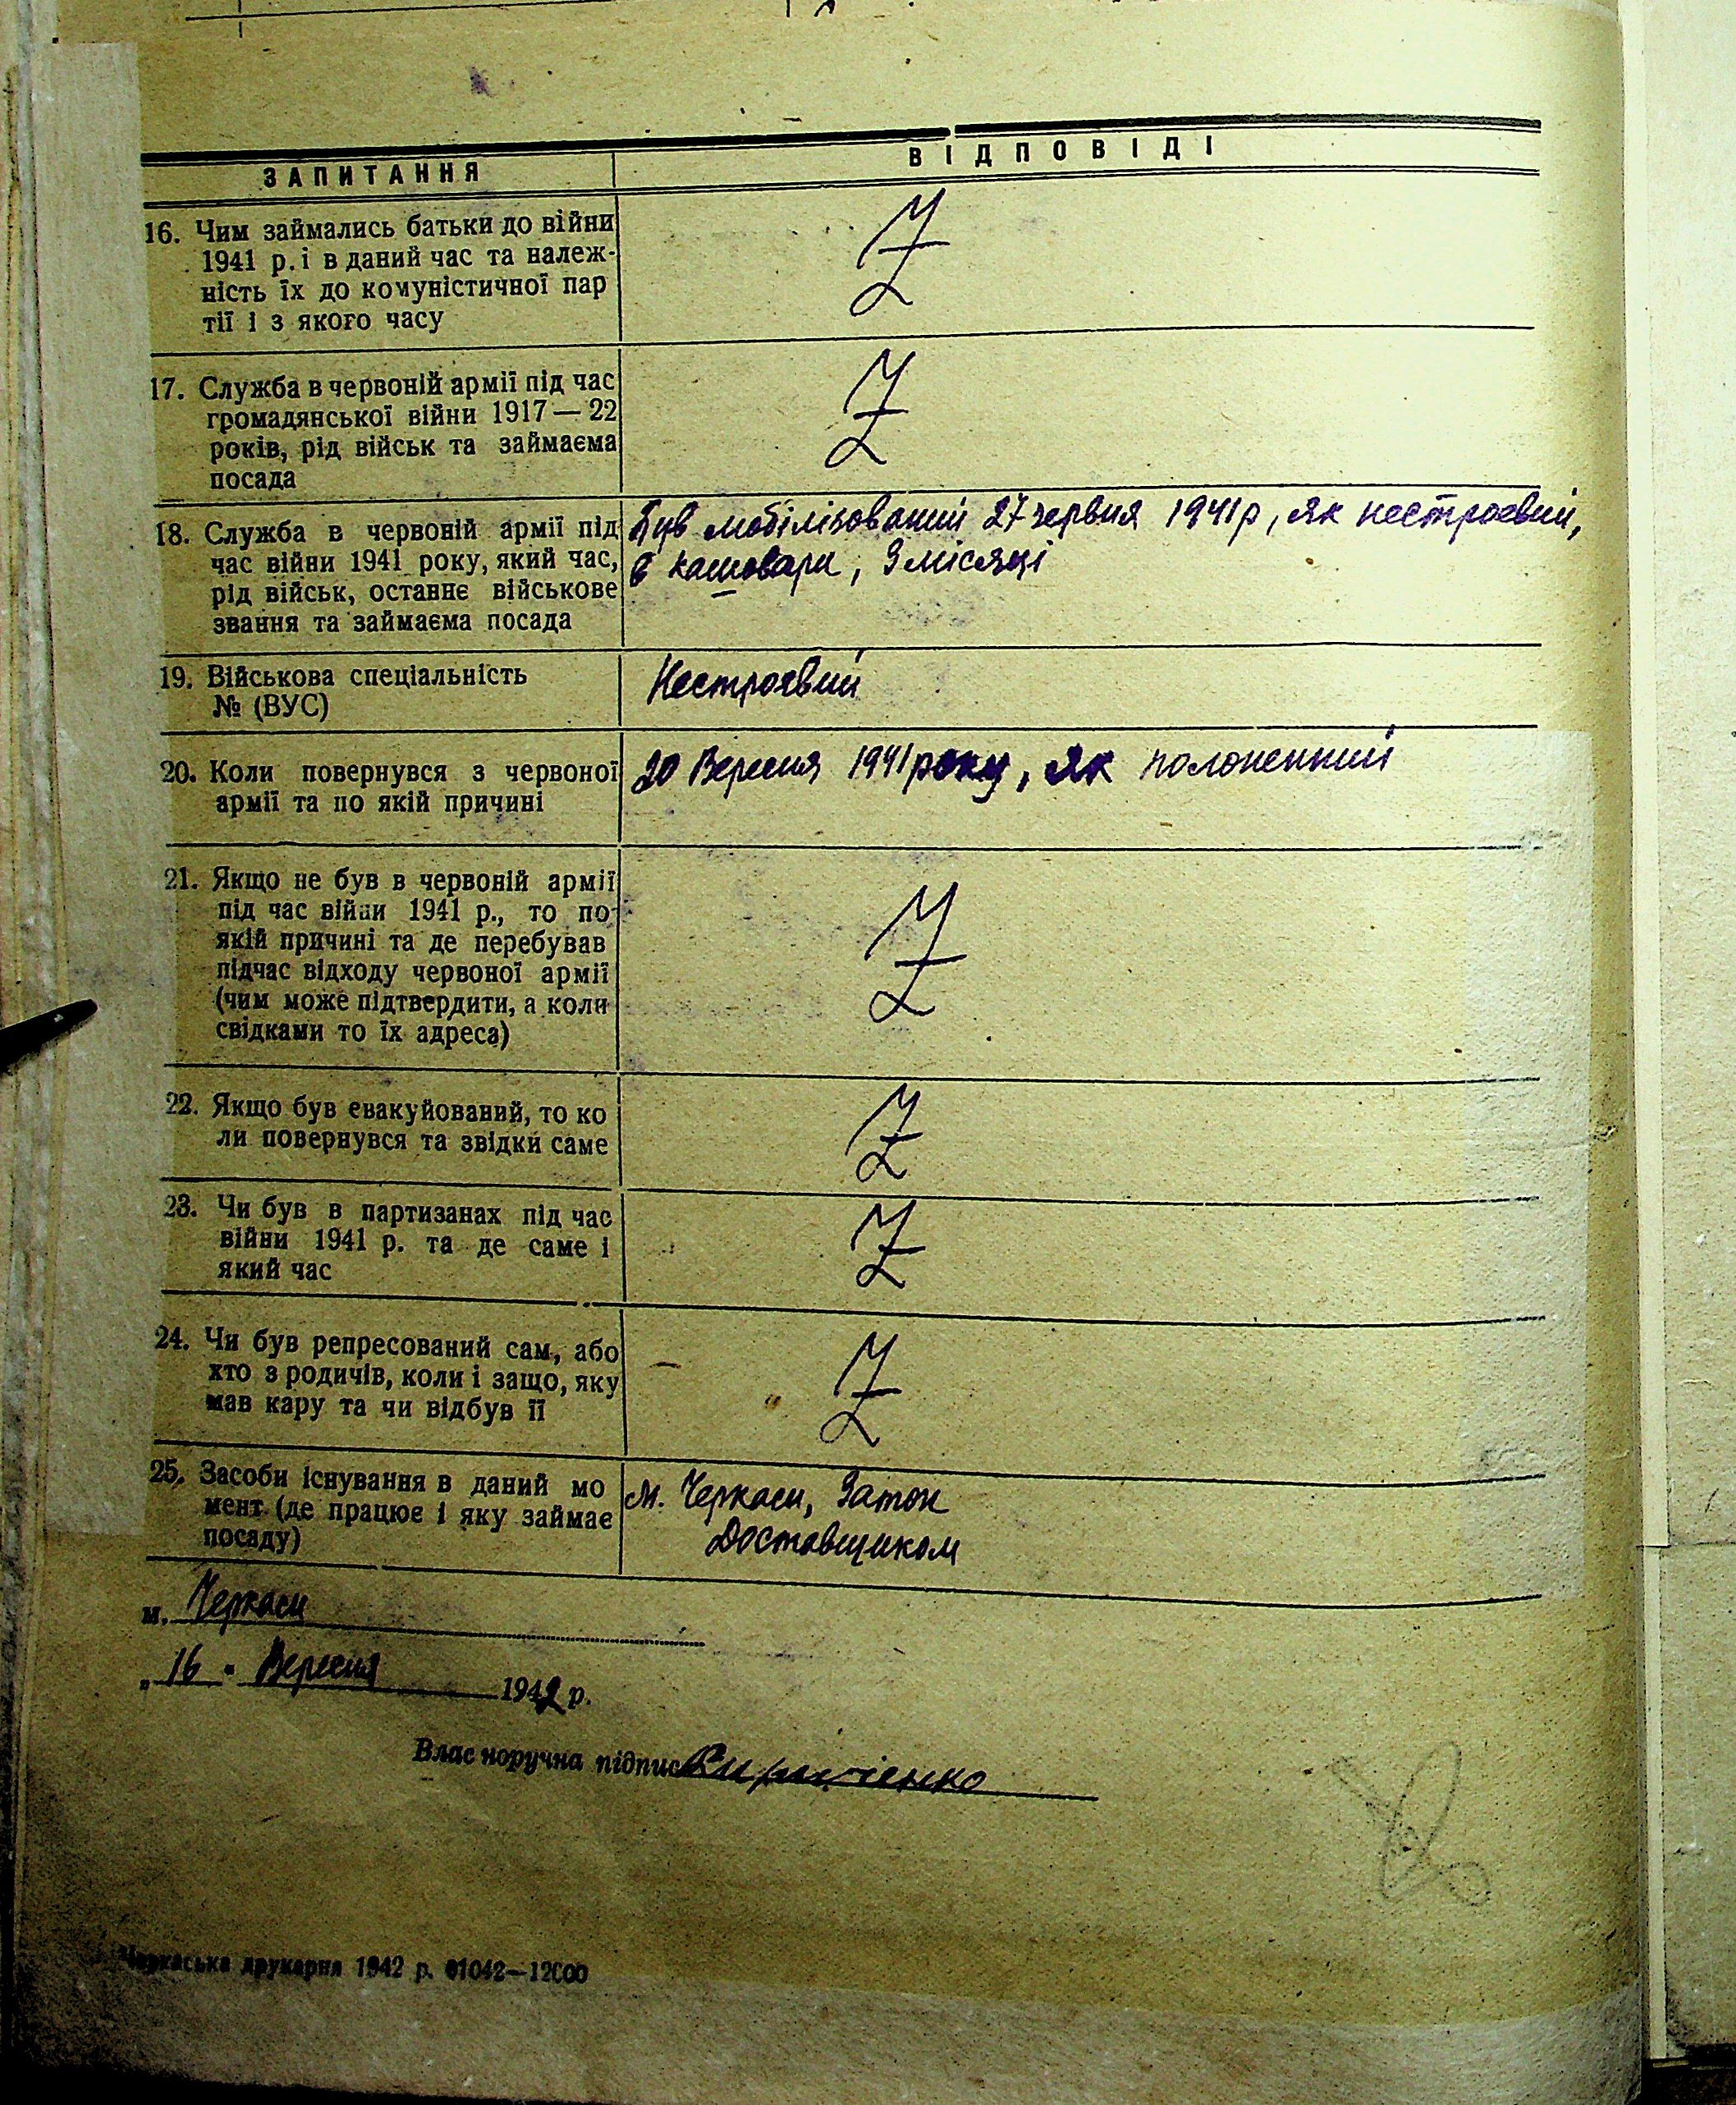 ЗАПИТАННЯ
ВІДПОВІДІ
16. Чим займались батьки до війни
1941 р. і в даний час та належ-
ність їх до комуністичної пар
тії і з якого часу
Z
17. Служба в червоній армії під час
громадянської війни 1917 — 22
років, рід військ та займаєма
посада
Z
18. Служба в червоній армії під
час війни 1941 року, який час,
рід військ, останнє військове
звання та займаєма посада
Був мобілізований 27 червня 1941 р, як нестроевий,
в кашовари, 3 місяці
19. Військова спеціальність
№ (ВУС)
Нестроевий
20. Коли повернувся з червоної
армії та по якій причині
20 Вересня 1941 року, як полоненний
21. Якщо не був в червоній армії
під час війни 1941 р., то по
якій причині та де перебував
підчас відходу червоної армії
(чим може підтвердити, а коли
свідками то їх адреса)
Z
22. Якщо був евакуйований, то ко
ли повернувся та звідки саме
Z
23. Чи був в партизанах під час
війни 1941 р. та де саме і
який час
Z
24. Чи був репресований сам, або
хто з родичів, коли і защо, яку
мав кару та чи відбув її
Z
25. Засоби існування в даний мо
мент (де працює і яку займає
посаду)
м. Черкаси, Затон
Доставщиком
м. Черкаси
„16" Вересня 1942 р.
Власноручна підпис
Черкаська друкарня 1942 р. 01042—12000